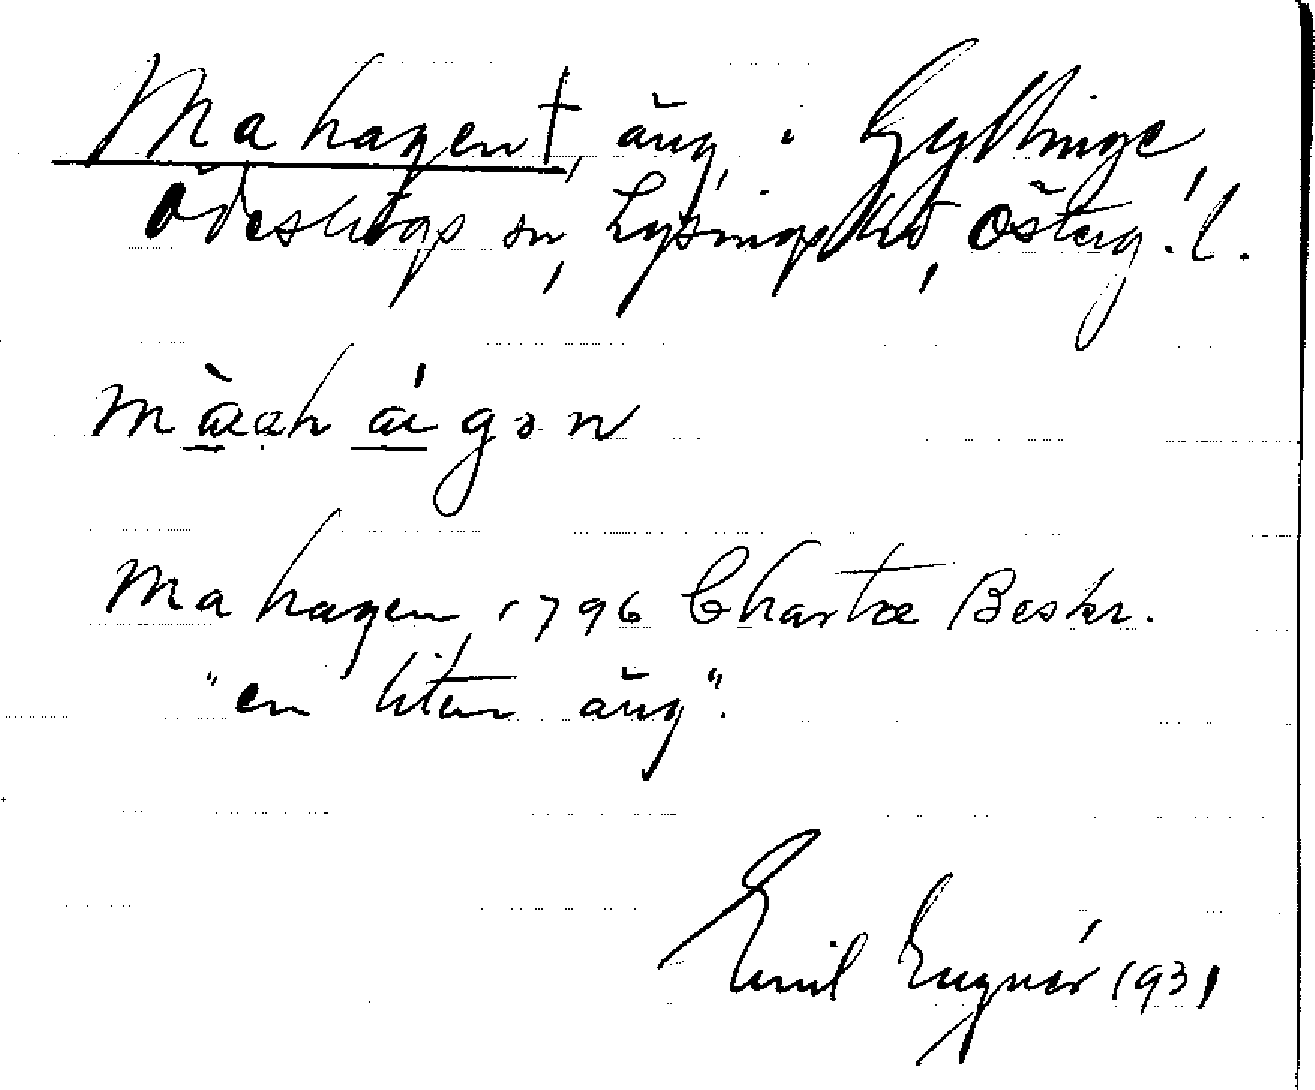 Mahagen†, äng i Gyllinge,
Ödeshögs sn, Lysings hd, Österg. l.
Mahagen, 1796 Charta Beskr.
"en liten äng".
Emil Engnér 1931